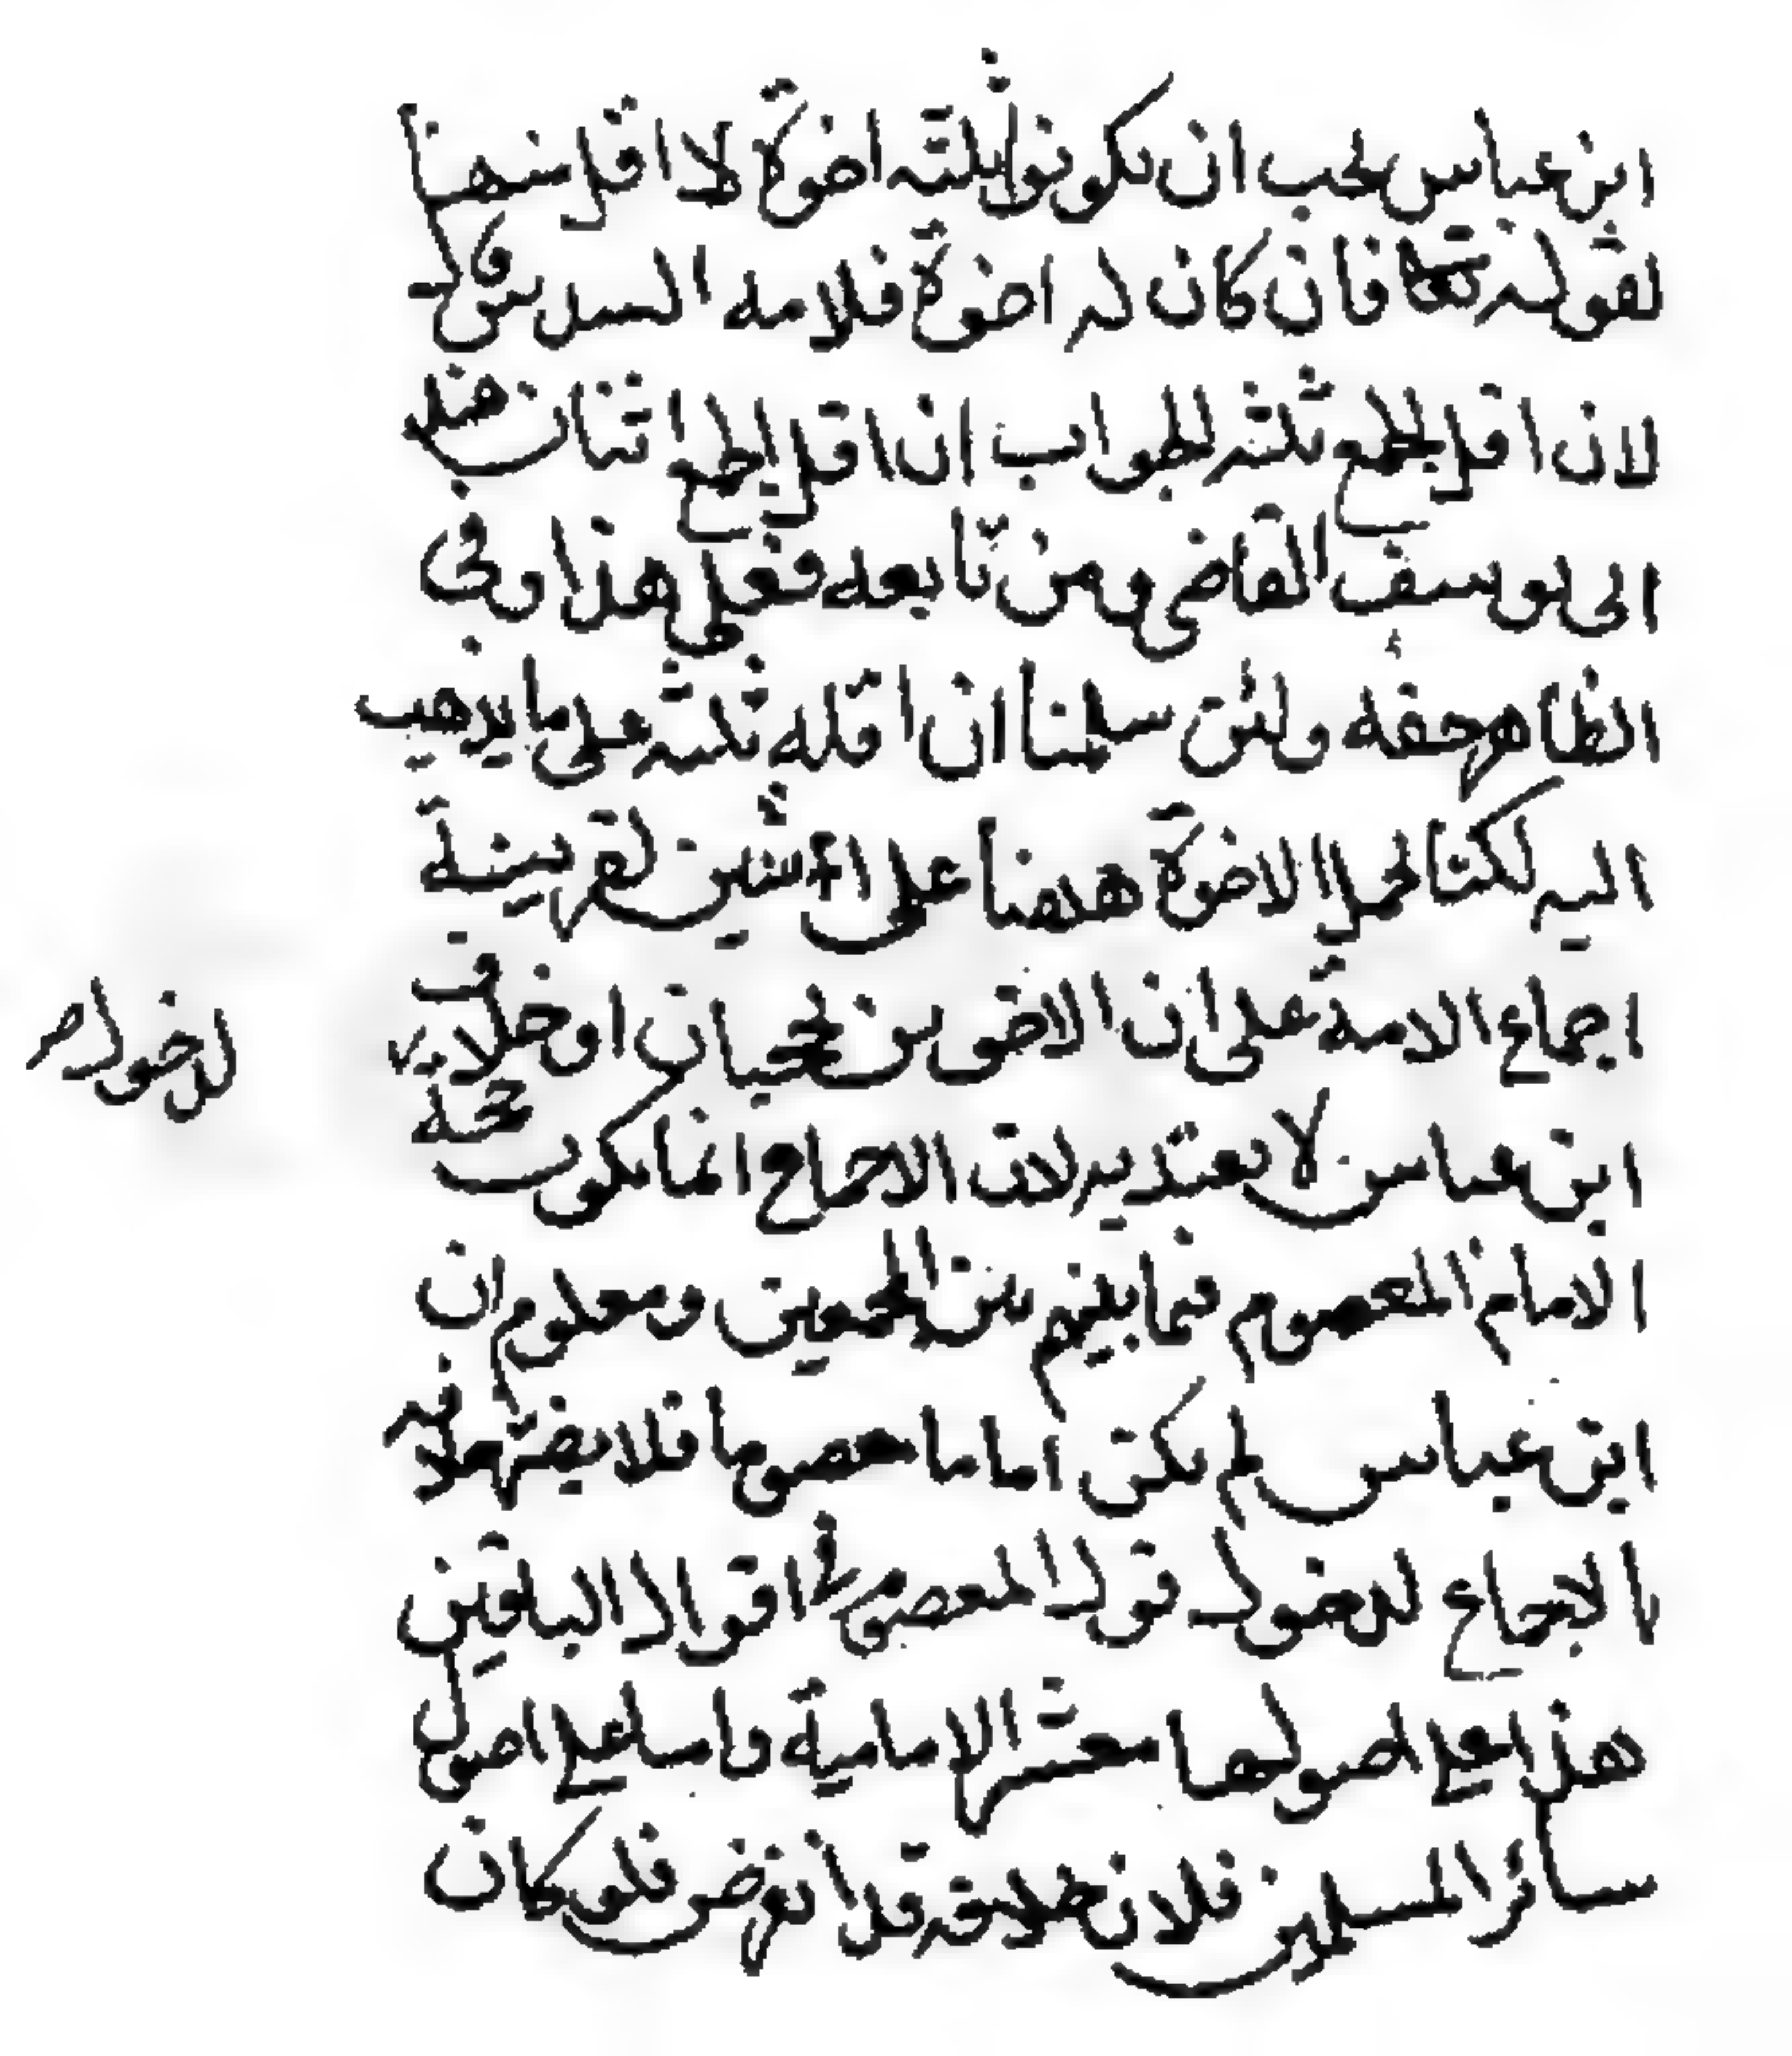 ابن عباس يجب ان يكونوا ثلثة اخوة لا اقل منها
لقوله تعا فان كان له اخوة فلامه السدس وذلك
لان اقل الجمع ثلثة الجواب ان اقل الجمع اثنان عند
ابى يوسف القاضى ومن تابعه فعلى هذا وفى
الظاهر حقه ولئن سلمنا ان اقله ثلثة على ما يذهب
اليه لكنا نحمل الاخوة ههنا على اثنين لقرينة
اجماع الامة على ان الاخوين يحجبان او خلاف
ابن عباس لا يعتد به لان الاجماع انما يكون حجة
لدخول
الامام المعصوم فيما بينهم بين المجمعين ومعلوم ان
ابن عباس لم يكن اماما معصوما فلا يضر خلافه
بالاجماع لدخول قول المعصوم فى اقوال الباقين
هذا على اصولها معشر الامامية واما على اصول
سائر المسلمين فلان خلافه قد انقرض فلو كان